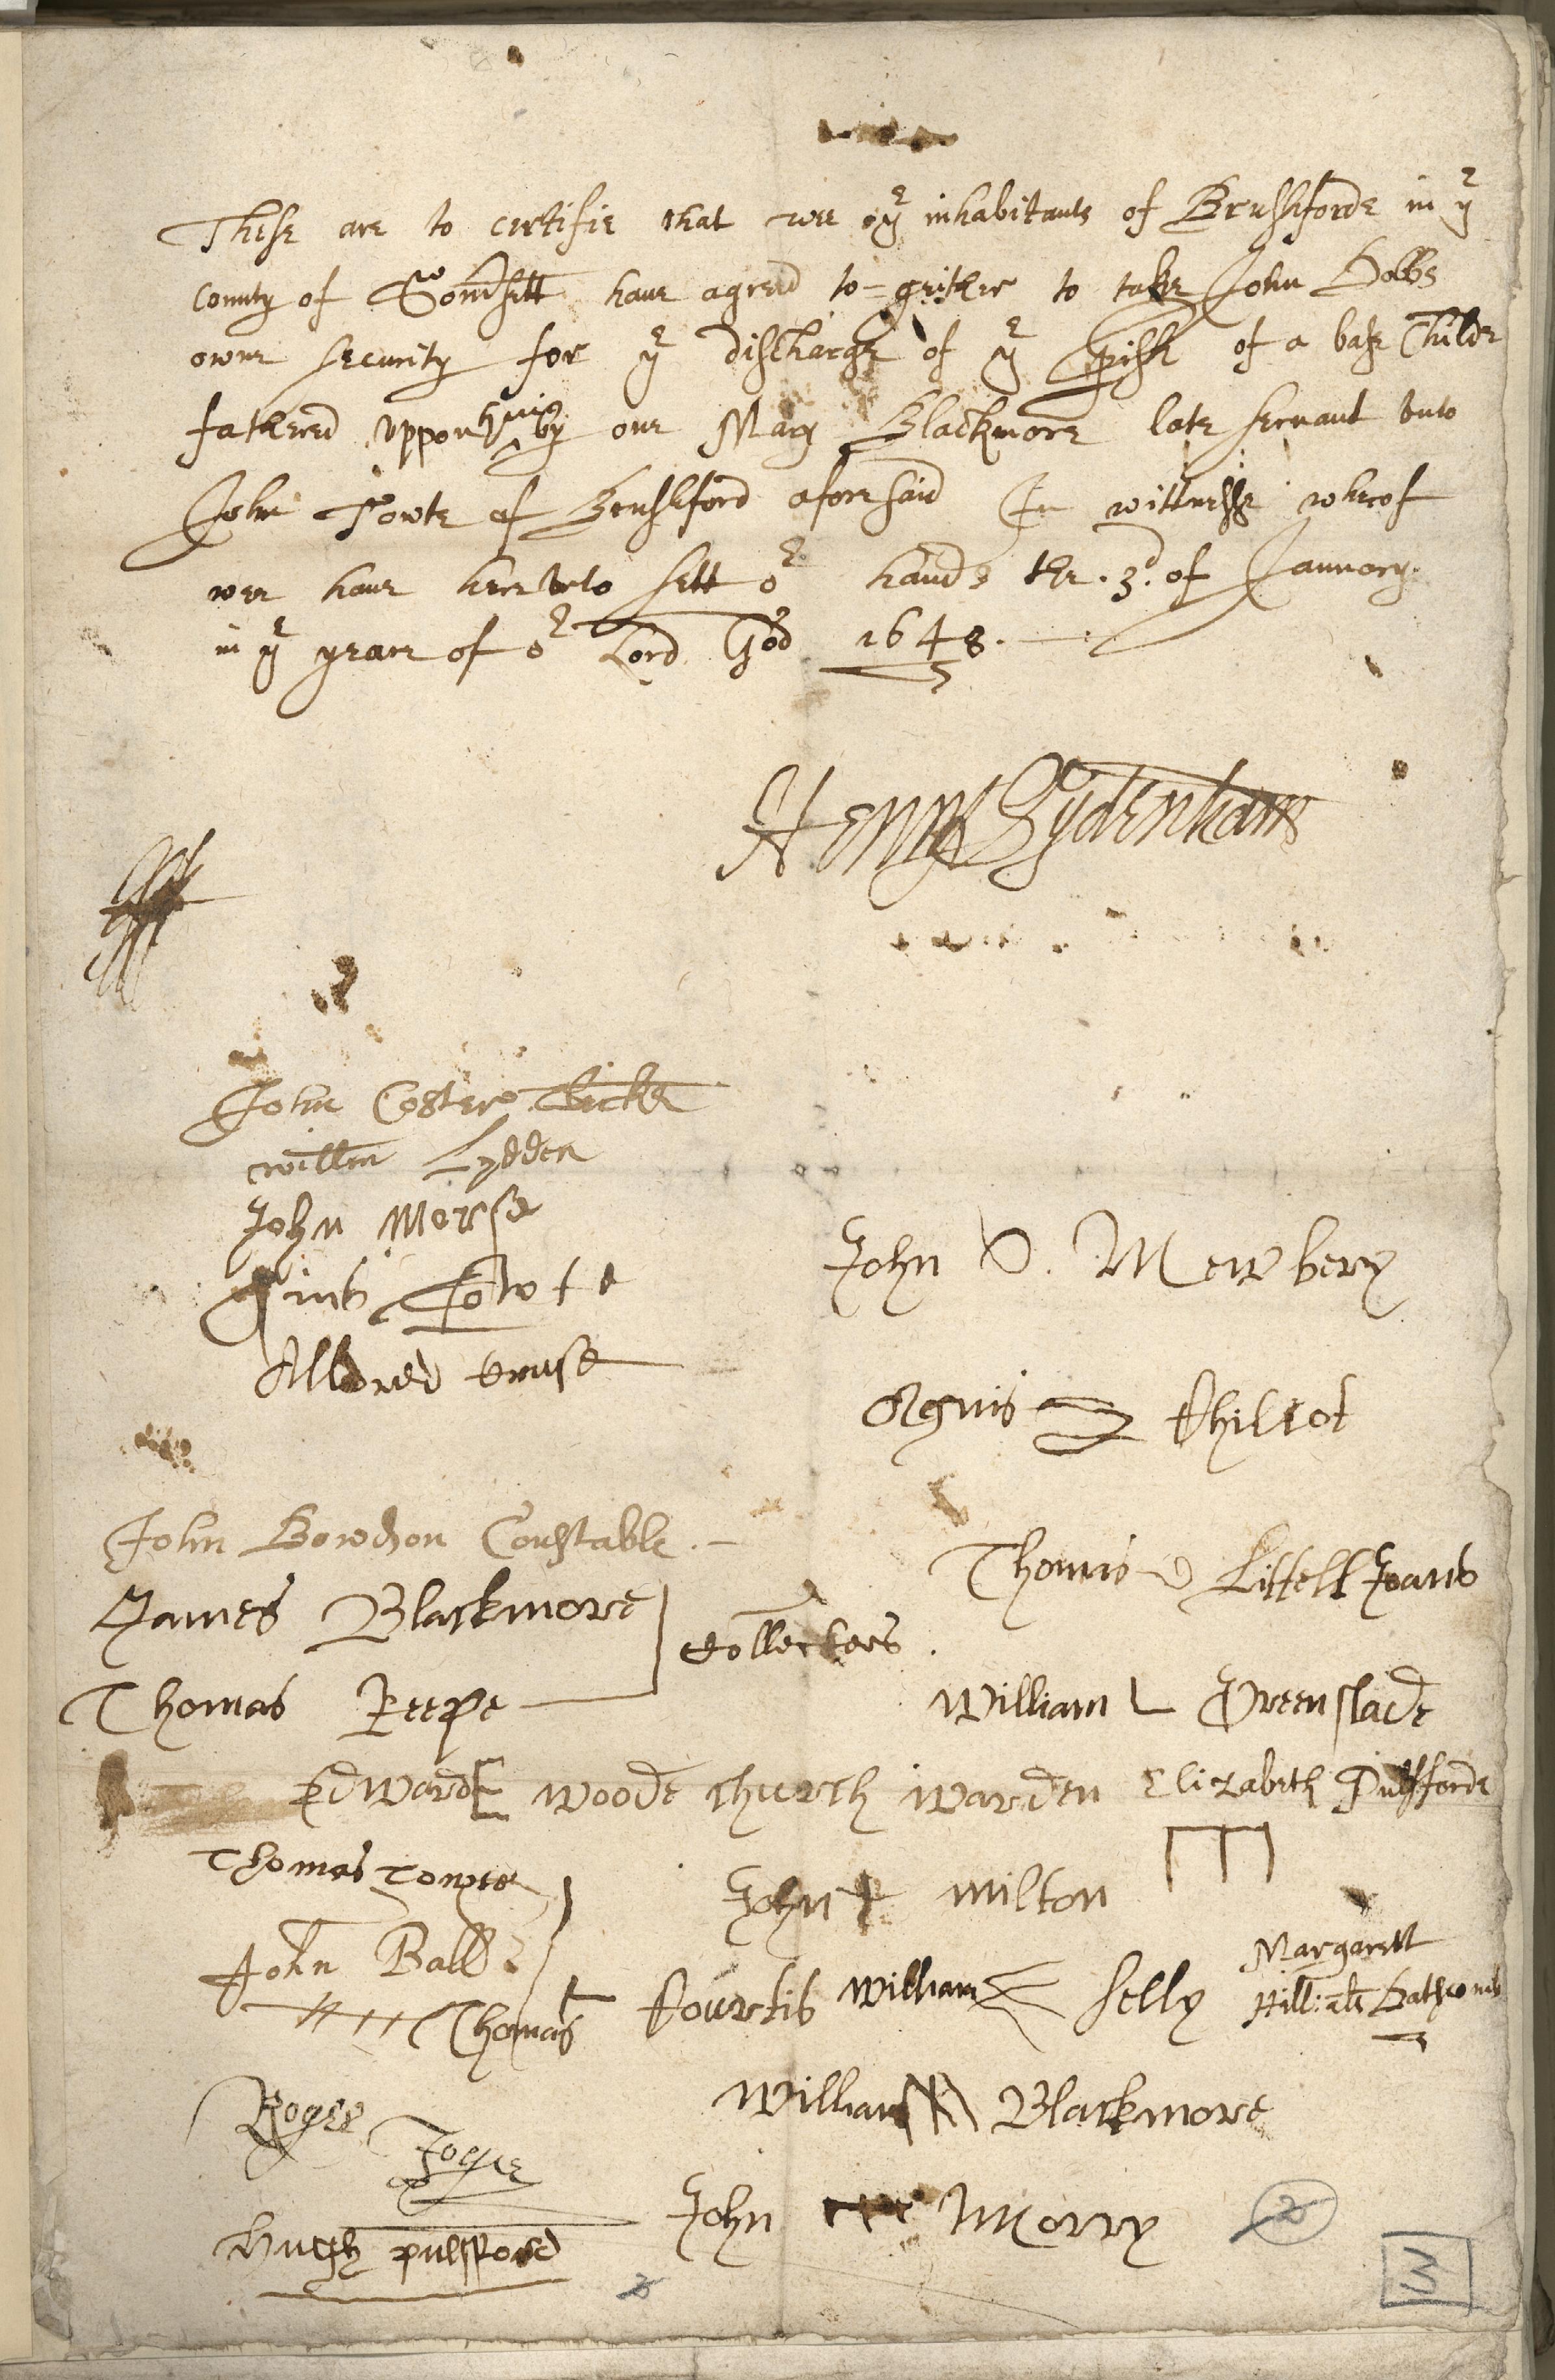 These are to certifie that wee ye inhabitants of Brushforde in ye
County of Somsett have agreed to=geither to take John Dobbs
owne security for ye discharge of ye pish of a base Childe
fathered uppon him by one Mary Blackmore late servant unto
John Towte of Brushford aforesaid In wittnesse wherof
wee have hereunto sett or hands the .3d. of January
in ye yeare of or Lord God 1648.
Henry Sydenham
John Costero Clerke
willm Lydden
John Morse
John Mewbery
Towte
Alldred
Agnis Philpot
John Bowdon Constable.
Thomis Littell Joans
James Blackmore
Collectors.
Thomas Peepe
William L Greenslade
Edward woode Church warden Elizabeth Pulsforde
Thomas Towte
John milton
John Balle
Margarett
Thomas Courtis William selly Hill: als Bathcomb
Roger
William Blackmore
John Morry 2
Hugh pulsford
2
3